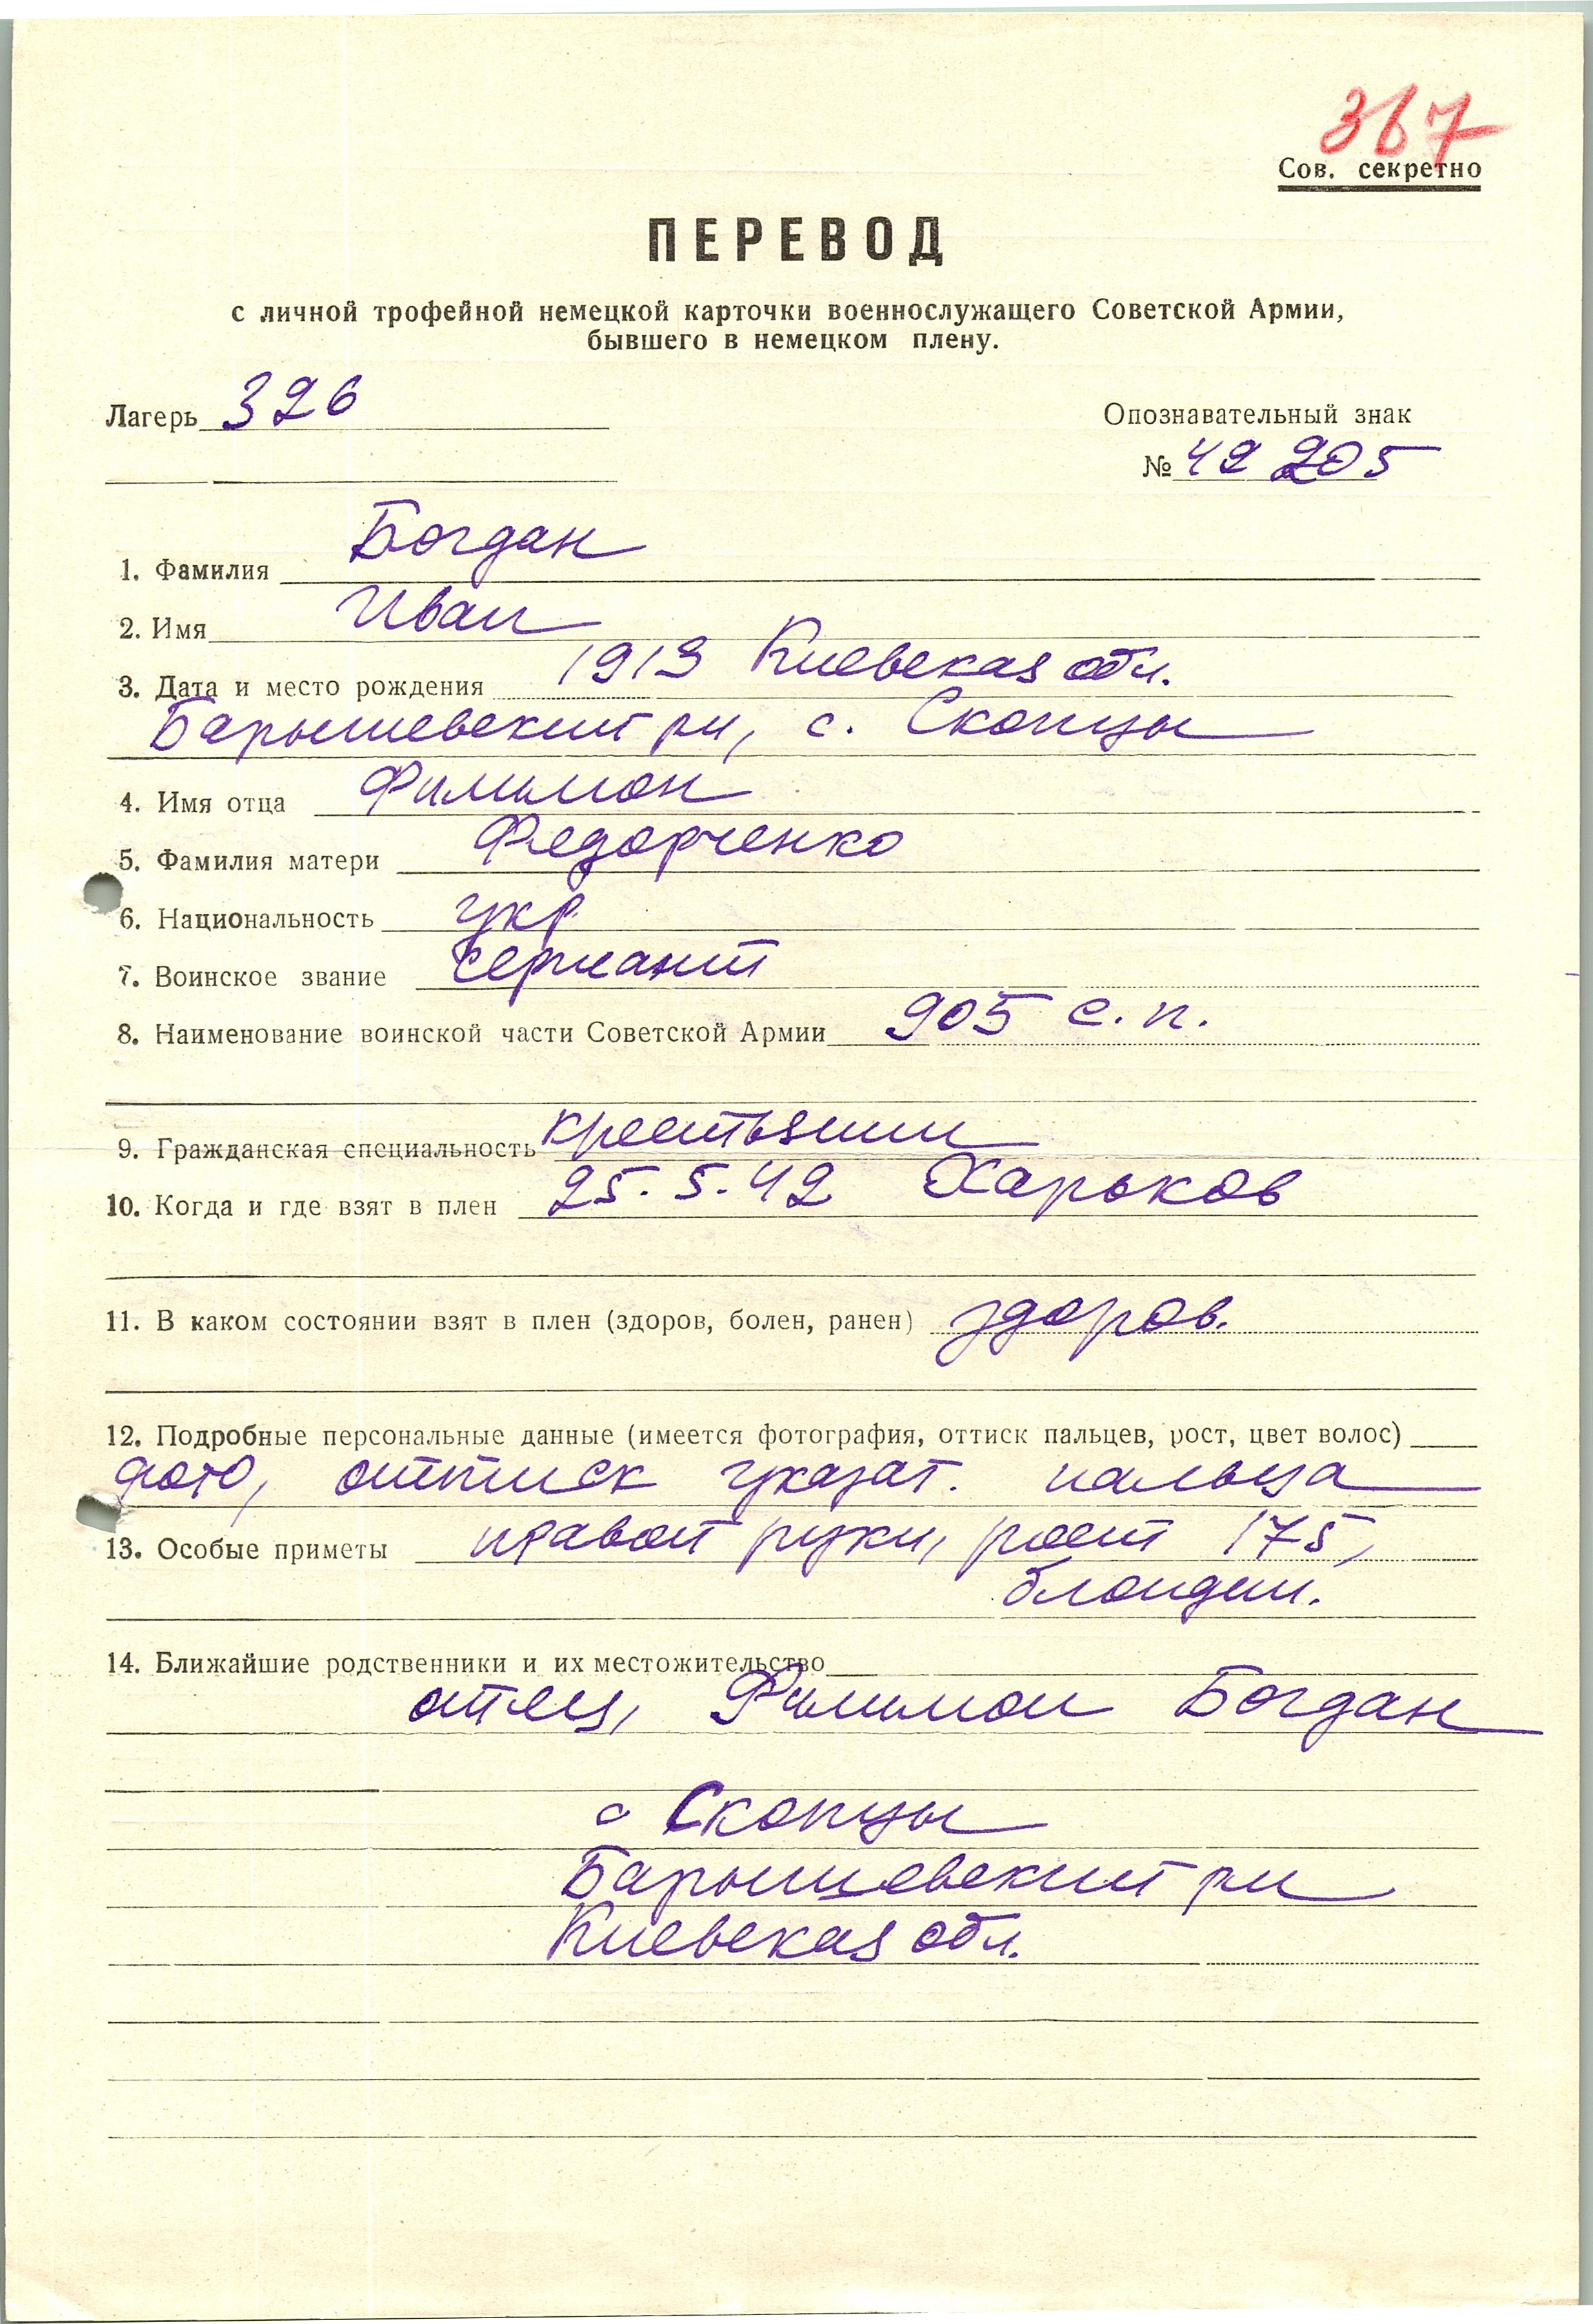 367
Сов. секретно
ПЕРЕВОД
с личной трофейной немецкой карточки военнослужащего Советской Армии,
бывшего в немецком плену.
Лагерь 326
Опознавательный знак
№ 42 205
1. Фамилия Богдан
2. Имя Иван
3. Дата и место рождения 1913 Киевская обл.
Барышевский рн, с. Скопцы
4. Имя отца Филимон
5. Фамилия матери Федорченко
6. Национальность укр
7. Воинское звание сержант
8. Наименование воинской части Советской Армии 905 с.п.
9. Гражданская специальность крестьянин
10. Когда и где взят в плен 25.5.42 Харьков
11. В каком состоянии взят в плен (здоров, болен, ранен) здоров.
12. Подробные персональные данные (имеется фотография, оттиск пальцев, рост, цвет волос)
фото, оттиск указат. пальца
13. Особые приметы правой руки, рост 175,
блондин.
14. Ближайшие родственники и их местожительство
отец, Филимон Богдан
с Скопцы
Барышевский рн
Киевская обл.